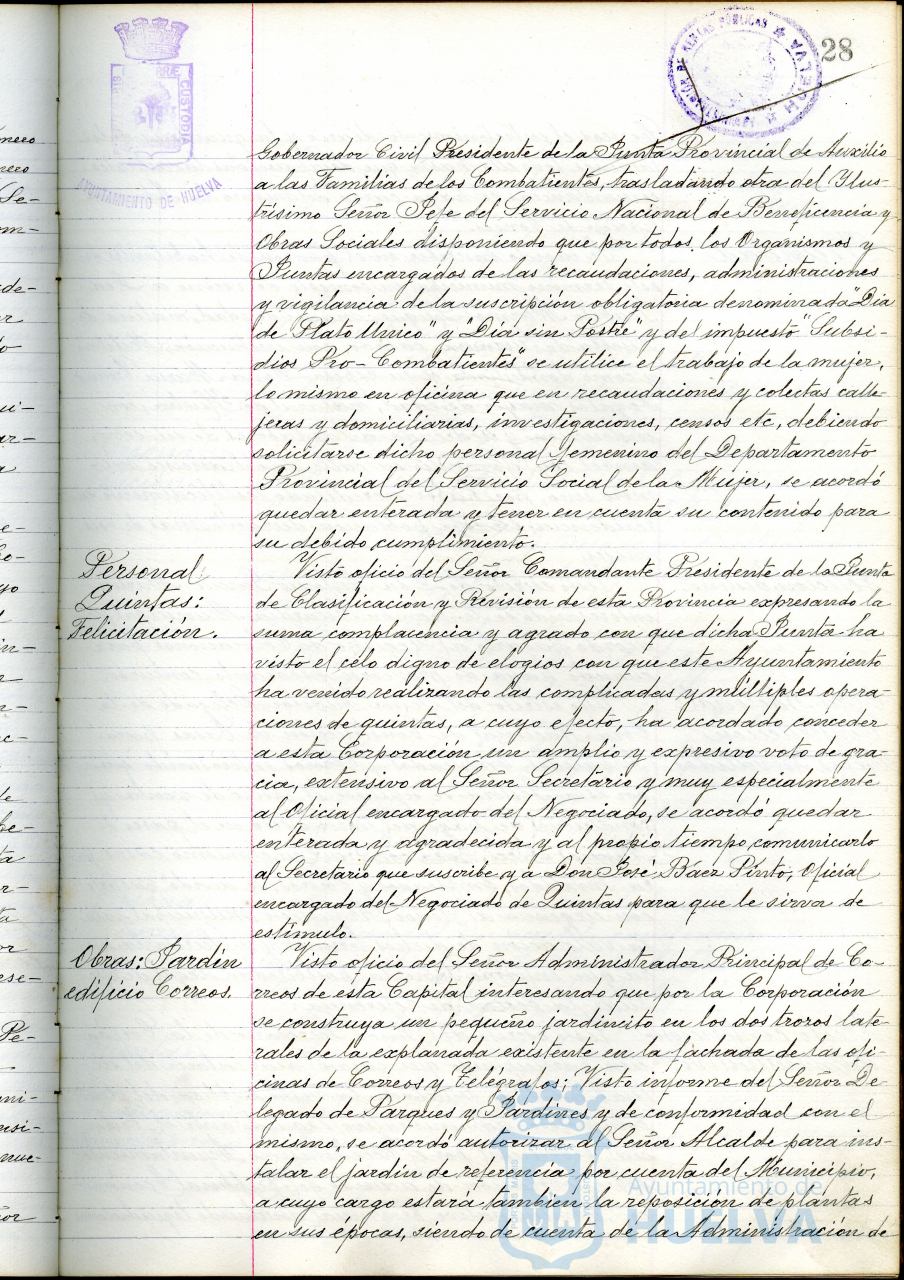 28
AYUNTAMIENTO DE HUELVA
CUSTODIA
HUELVA
Gobernador Civil Presidente de la Junta Provincial de Auxilio
a las Familias de los Combatientes, trasladando otra del Ylus-
trísimo Señor Jefe del Servicio Nacional de Beneficencia y
Obras Sociales disponiendo que por todos los Organismos y
Juntas encargados de las recaudaciones, administraciones
y vigilancia de la suscripción obligatoria denominada "Dia
de Plato Unico" y "Dia sin Postre" y del impuesto "Subsi-
dios Pro-Combatientes" se utilice el trabajo de la mujer,
lo mismo en oficina que en recaudaciones y colectas calle-
jeras y domiciliarias, investigaciones, censos etc, debiendo
solicitarse dicho personal femenino del Departamento
Provincial del Servicio Social de la Mujer, se acordó
quedar enterada y tener en cuenta su contenido para
su debido cumplimiento.
Personal
Quintas:
Felicitación.
Visto oficio del Señor Comandante Presidente de la Junta
de Clasificación y Revisión de esta Provincia expresando la
suma complacencia y agrado con que dicha Junta ha
visto el celo digno de elogios con que este Ayuntamiento
ha venido realizando las complicadas y múltiples opera-
ciones de quintas, a cuyo efecto, ha acordado conceder
a esta Corporación un amplio y expresivo voto de gra-
cia, extensivo al Señor Secretario y muy especialmente
al Oficial encargado del Negociado, se acordó quedar
enterada y agradecida y al propio tiempo comunicarlo
al Secretario que suscribe y a Don José Báez Pinto, Oficial
encargado del Negociado de Quintas para que le sirva de
estímulo.
Obras: Jardín
edificio Correos.
Visto oficio del Señor Administrador Principal de Co-
rreos de esta Capital interesando que por la Corporación
se construya un pequeño jardincito en los dos trozos late-
rales de la explanada existente en la fachada de las ofi-
cinas de Correos y Telégrafos; Visto informe del Señor De
legado de Parques y Jardines y de conformidad con el
mismo, se acordó autorizar al Señor Alcalde para ins-
talar el jardín de referencia por cuenta del Municipio,
a cuyo cargo estará también la reposición de plantas
en sus épocas, siendo de cuenta de la Administración de
Ayuntamiento de
HUELVA